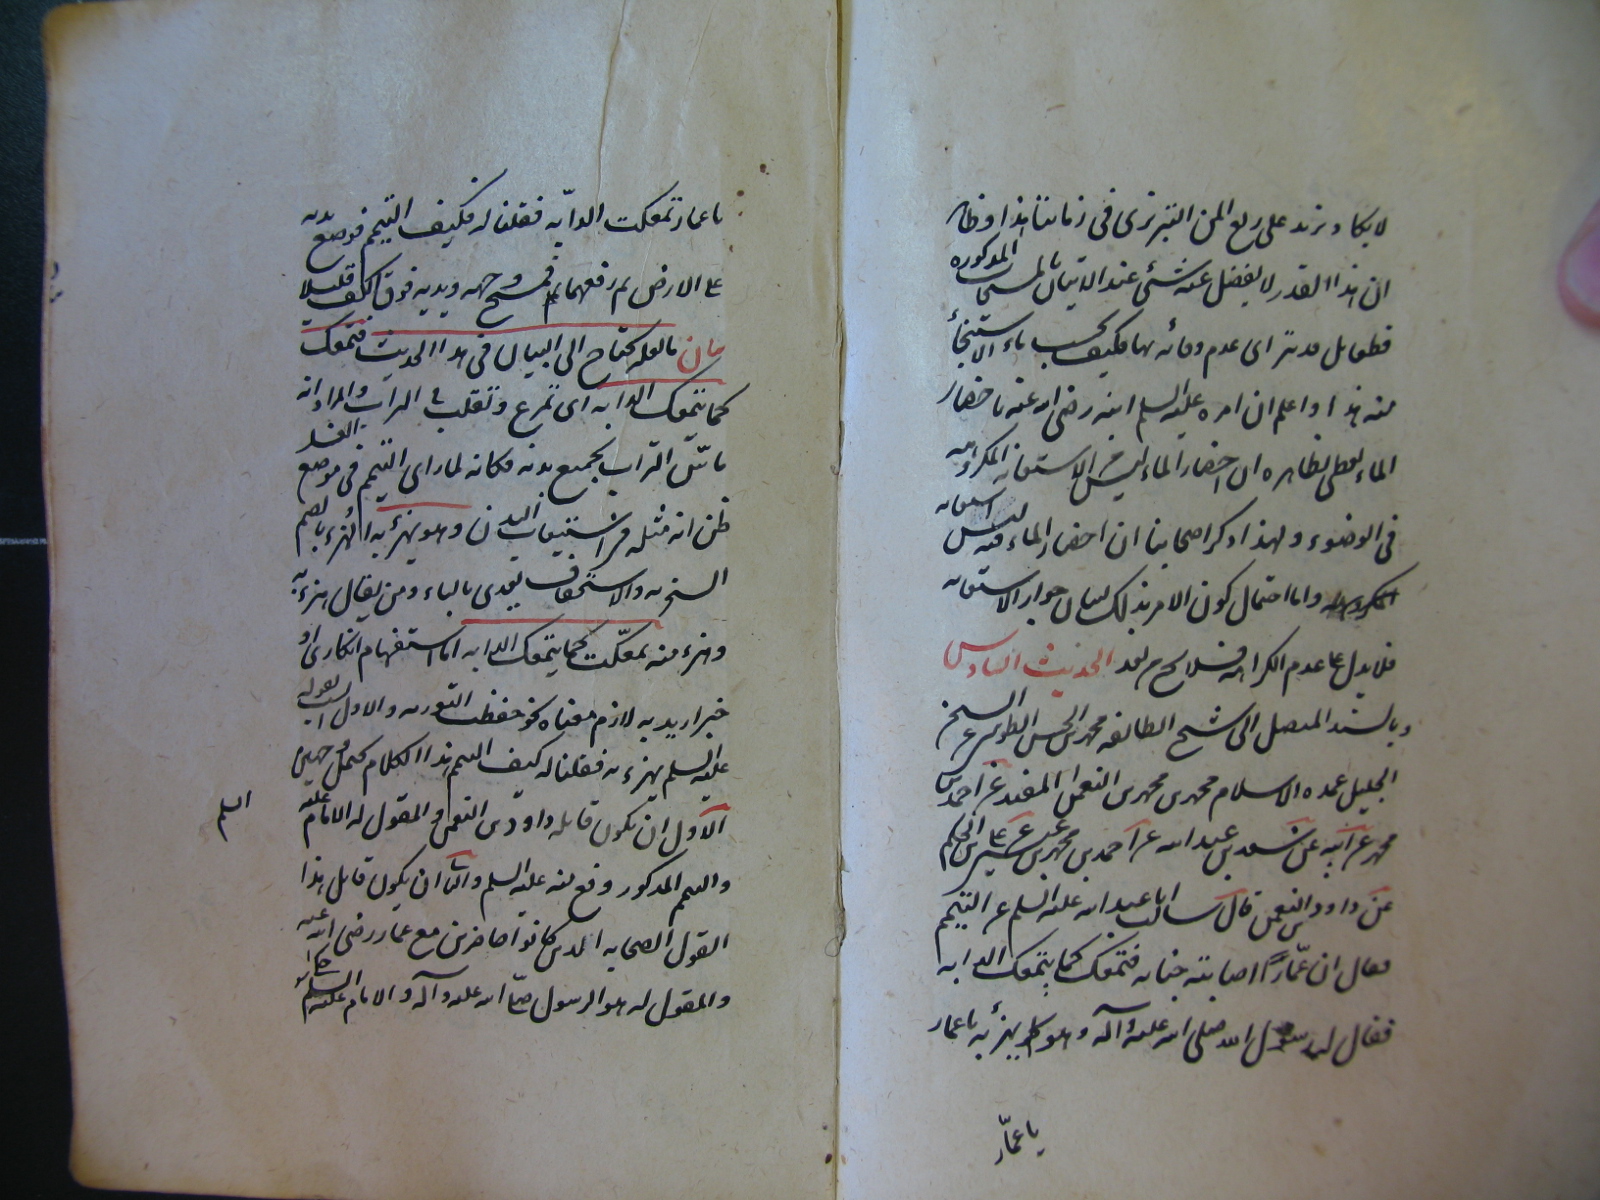 لا يكاد يزيد على ربع المن التبريزي في زماننا هذا وظاهر
ان هذا القدر لا يفضل عنه شئ عند الاتيان بالمستحبات المذكورة
فطعا بل قد يترا اى عدم وفائه بها فكيف يحسب ماء الاستنجاء
منه هذا واعلم ان امره عليه السلم ابنه رضى الله عنه باحضار
الماء يعطى بظاهره ان احضار الماء ليس من الاستعانة المكروهه
في الوضوء ولهذا ذكر اصحابنا ان احضار الماء فيه ليس استعانة
مكروهة واما احتمال كون الامر بذلك لبيان جواز الاستعانه
فلا يدل على عدم الكراهة فلا يخ من بعد الحديث السادس
وبالسند المتصل الى شيخ الطائفه محمد بن الحسن الطوسى عن الشيخ
الجليل عمدة الاسلام محمد بن محمد بن النعمن المفيد عن احمد بن
محمد عن ابيه عن سعد بن عبد الله عن احمد بن محمد بن عيسى عن على بن الحكم
عن داود بن النعمن قال سالت ابا عبد الله عليه السلم عن التيمم
فقال ان عمّارًا اصابته جنابه فتمعك كما يتمعك الدابه
فقال له رسول الله صلى الله عليه وآله وهو يهزئ به يا عمار
يا عمّار
يا عمار تمعكت كما تتمعك الدابّه فقلنا له فكيف التيمم فوضع يديه
على الارض ثم رفعهما فمسح وجهه ويديه فوق الكف قليلا
بيان ما لعله يحتاج الى البيان في هذا الحديث فتمعك
كما يتمعك الدابه اى تمرغ وتقلب في التراب والمراد انه
ماسّ التراب بجميع بدنه فكانه لما راى التيمم في موضع الغسل
ظن انه مثله في استيعاب البدن وهو يهزئ به الهُزء بالضم
السخريه والاستخفاف يتعدى بالباء ومن يقال هزء به
وهزء منه تمعّكت كما يتمعك الدابه اما استفهام انكارى او
خبر اريد به لازم معناه نحو حفظت التوريه والاول انسب بقوله
عليه السلم يهزء به فقلنا له كيف التيمم هذا الكلام يحتمل وجهين
الاول ان يكون قايله داود بن النعمن والمقول له الامام عليه
السلم
والتيمم المذكور وقع منه عليه السلم والثانى ان يكون قايل هذا
القول الصحابه الذين كانوا حاضرين مع عمار رضى الله عنه
والمقول له هو الرسول صلى الله عليه وآله والامام عليه السلم حكى